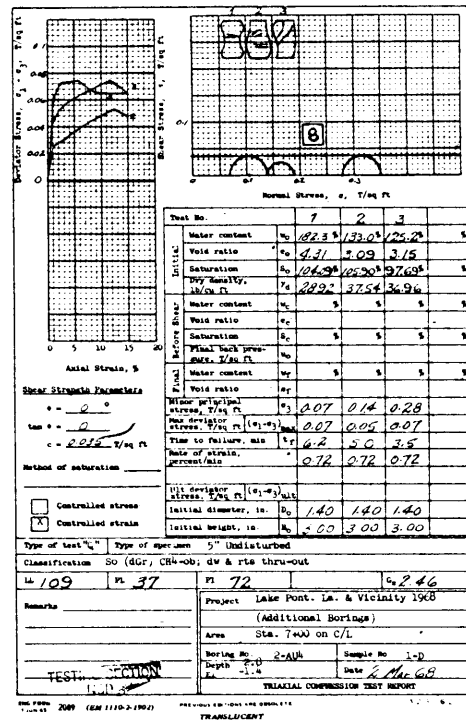 1 2 3
Deviator Stress, σ1 - σ3, T/sq ft
0.1
0.08
0.06
0.04
0.02
0
0 5 10 15 20
Axial Strain, %
Shear Stress, τ, T/sq ft
0.1
8
0.1 0.2 0.3
Normal Stress, σ, T/sq ft
Shear Strength Parameters
φ = 0 °
tan φ = 0
c = 0.035 T/sq ft
Method of saturation
Controlled stress
X Controlled strain
Test No. 1 2 3
Initial
Water content wo 182.3 % 133.0 % 125.2 %
Void ratio eo 4.31 3.09 3.15
Saturation So 104.09 % 105.90 % 97.69 %
Dry density, lb/cu ft γd 28.92 37.54 36.96
Before Shear
Water content wc % % %
Void ratio ec
Saturation Sc % % %
Final back pressure, T/sq ft uo
Final
Water content wf % % %
Void ratio ef
Minor principal stress, T/sq ft σ3 0.07 0.14 0.28
Max deviator stress, T/sq ft (σ1-σ3)max 0.07 0.05 0.07
Time to failure, min tf 6.2 5.0 3.5
Rate of strain, percent/min 0.72 0.72 0.72
Ult deviator stress, T/sq ft (σ1-σ3)ult
Initial diameter, in. Do 1.40 1.40 1.40
Initial height, in. Ho 3.00 3.00 3.00
Type of test "Q" Type of specimen 5" Undisturbed
Classification So (dGr, CH4-ob; dw & rts thru-out
LL 109 PL 37 PI 72 Gs 2.46
Remarks
Project Lake Pont. La. & Vicinity 1968
(Additional Borings)
Area Sta. 7+00 on C/L
Boring No. 2-AU4 Sample No 1-D
Depth 2.0
El -1.4
Date 2 Mar 68
TESTING SECTION
TRIAXIAL COMPRESSION TEST REPORT
ENG FORM 2089 (EM 1110-2-1902)
PREVIOUS EDITIONS ARE OBSOLETE
TRANSLUCENT